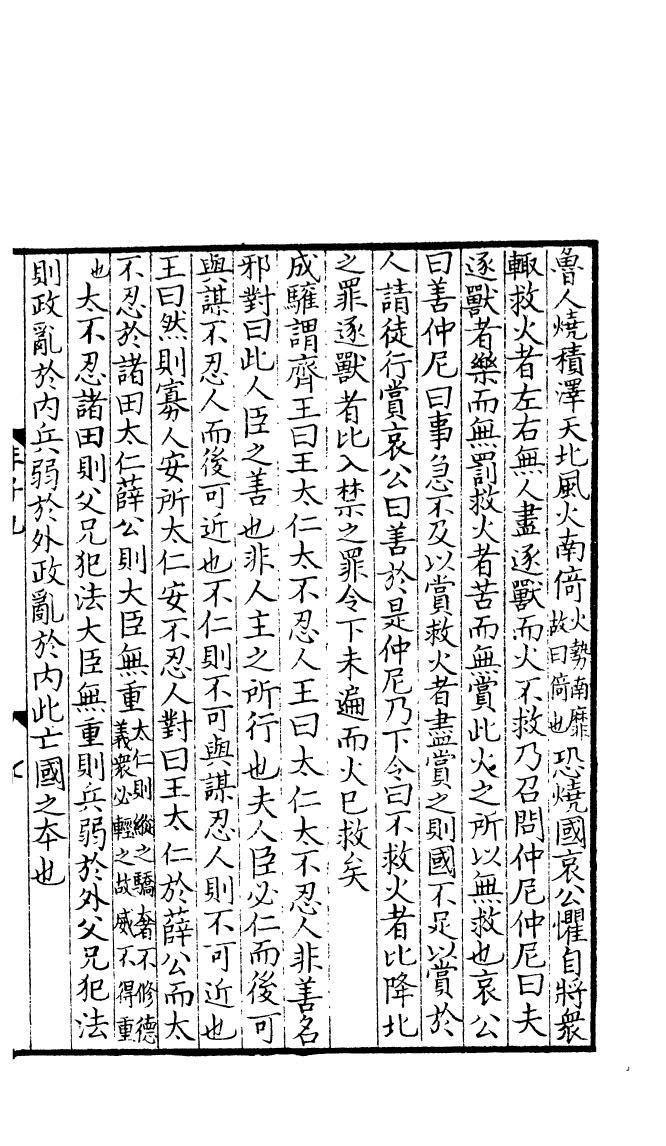 魯人燒積澤天北風火南倚火勢南靡故曰倚也恐燒國哀公懼自將衆
輙救火者左右無人盡逐獸而火不救乃召問仲尼仲尼曰夫
逐獸者樂而無罰救火者苦而無賞此火之所以無救也哀公
曰善仲尼曰事急不及以賞救火者盡賞之則國不足以賞於
人請徒行賞哀公曰善於是仲尼乃下令曰不救火者比降北
之罪逐獸者比入禁之罪令下未遍而火已救矣
成驩謂齊王曰王太仁太不忍人王曰太仁太不忍人非善名
邪對曰此人臣之善也非人主之所行也夫人臣必仁而後可
與謀不忍人而後可近也不仁則不可與謀忍人則不可近也
王曰然則寡人安所太仁安不忍人對曰王太仁於薛公而太
不忍於諸田太仁薛公則大臣無重太仁則縱之驕奢不修德義衆必輕之故威不得重
也太不忍諸田則父兄犯法大臣無重則兵弱於外父兄犯法
則政亂於内兵弱於外政亂於内此亡國之夲也